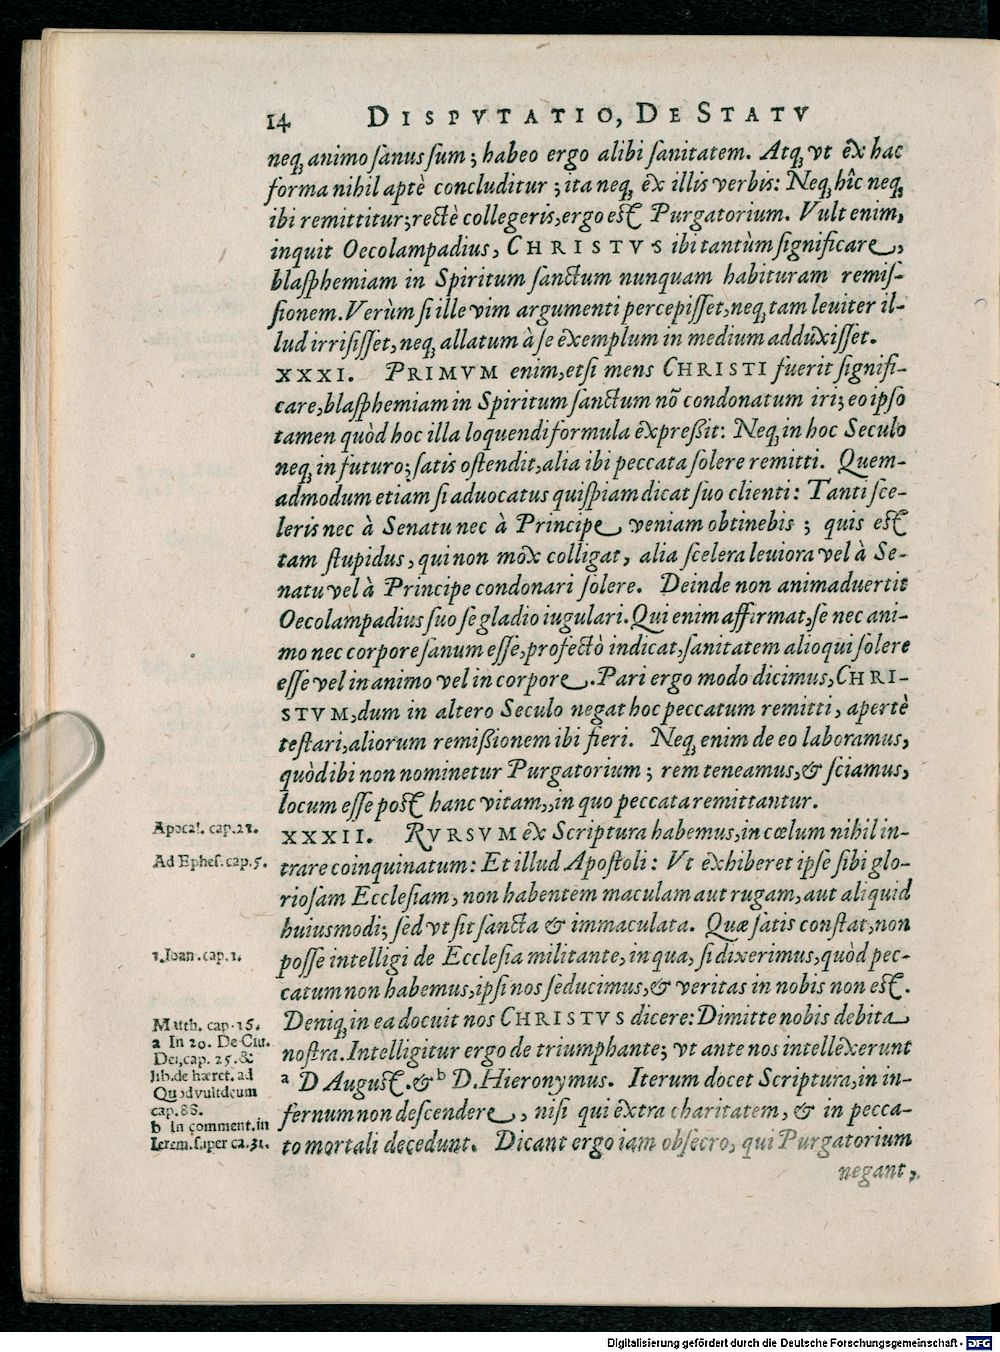 14 DISPVTATIO, DE STATV
neq́; animo sanus sum; habeo ergo alibi sanitatem. Atq́; vt ex hac
forma nihil aptè concluditur; ita neq́; ex illis verbis: Neq́; hîc neq́;
ibi remittitur; rectè collegeris, ergo est Purgatorium. Vult enim,
inquit Oecolampadius, CHRISTVS ibi tantùm significare,
blasphemiam in Spiritum sanctum nunquam habituram remis-
sionem. Verùm si ille vim argumenti percepisset, neq́; tam leuiter il-
lud irrisisset, neq́; allatum à se exemplum in medium adduxisset.
XXXI. PRIMVM enim, etsi mens CHRISTI fuerit signifi-
care, blasphemiam in Spiritum sanctum nõ condonatum iri; eo ipso
tamen quòd hoc illa loquendi formula expreßit: Neq́; in hoc Seculo
neq́; in futuro; satis ostendit, alia ibi peccata solere remitti. Quem-
admodum etiam si aduocatus quispiam dicat suo clienti: Tanti sce-
leris nec à Senatu nec à Principe veniam obtinebis; quis est
tam stupidus, qui non mox colligat, alia scelera leuiora vel à Se-
natu vel à Principe condonari solere. Deinde non animaduertit
Oecolampadius suo se gladio iugulari. Qui enim affirmat, se nec ani-
mo nec corpore sanum esse, profectò indicat, sanitatem alioqui solere
esse vel in animo vel in corpore. Pari ergo modo dicimus, CHRI-
STVM, dum in altero Seculo negat hoc peccatum remitti, apertè
testari, aliorum remißionem ibi fieri. Neq́; enim de eo laboramus,
quòd ibi non nominetur Purgatorium; rem teneamus, & sciamus,
locum esse post hanc vitam, in quo peccata remittantur.
Apocal. cap. 21.
XXXII. RVRSVM ex Scriptura habemus, in cœlum nihil in-
Ad Ephes. cap. 5.
trare coinquinatum: Et illud Apostoli: Vt exhiberet ipse sibi glo-
riosam Ecclesiam, non habentem maculam aut rugam, aut aliquid
huiusmodi; sed vt sit sancta & immaculata. Quæ satis constat, non
1. Ioan. cap. 1.
posse intelligi de Ecclesia militante, in qua, si dixerimus, quòd pec-
catum non habemus, ipsi nos seducimus, & veritas in nobis non est.
Matth. cap. 15.
Deniq́; in ea docuit nos CHRISTVS dicere: Dimitte nobis debita
a In 20. De Ciu.
Dei, cap. 25. &
nostra. Intelligitur ergo de triumphante; vt ante nos intellexerunt
lib. de hæret. ad
Quodvultdeum
a D August. & b D. Hieronymus. Iterum docet Scriptura, in in-
cap. 88.
fernum non descendere, nisi qui extra charitatem, & in pecca-
b In comment. in
Ierem. super ca. 31.
to mortali decedunt. Dicant ergo iam obsecro, qui Purgatorium
negant,
Digitalisierung gefördert durch die Deutsche Forschungsgemeinschaft - DFG